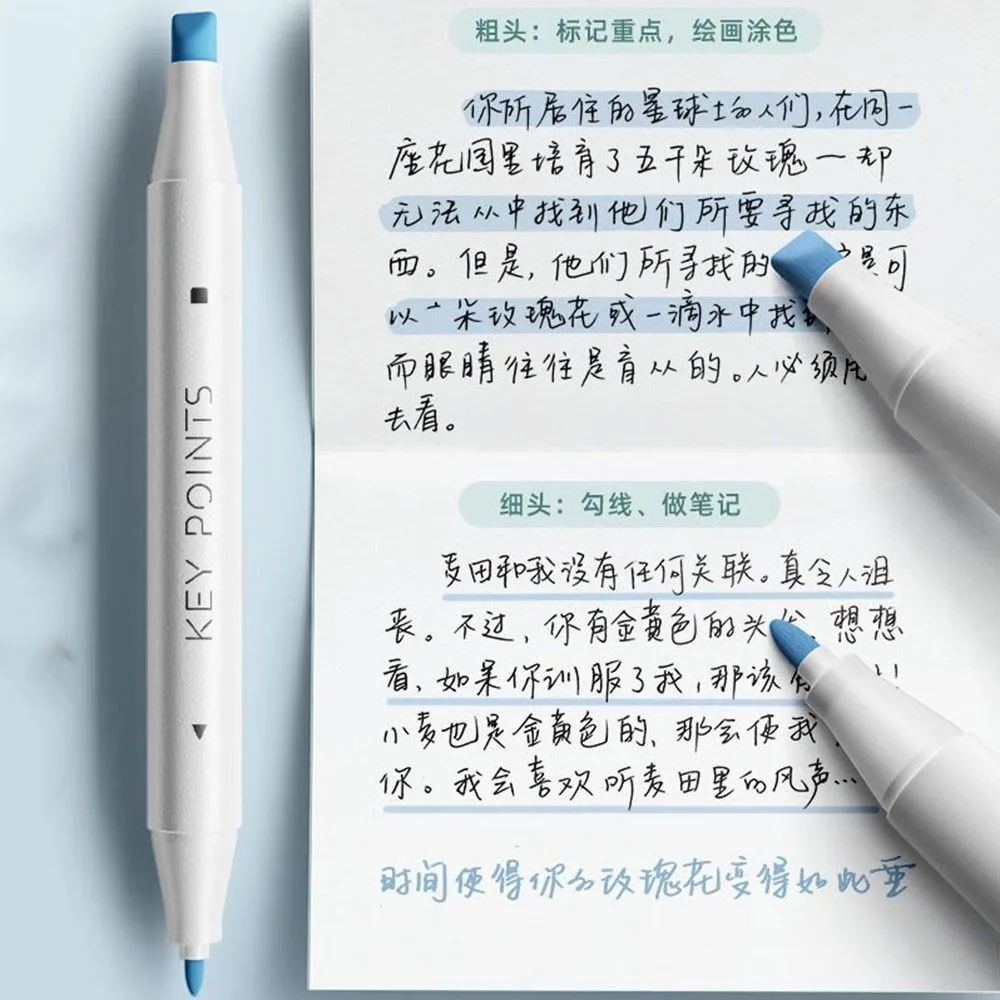 粗头：标记重点，绘画涂色
你所居住的星球上的人们，在同一
座花园里培育了五千朵玫瑰一却
无法从中找到他们所要寻找的东
西。但是，他们所寻找的是可
以一朵玫瑰花或一滴水中找
而眼睛往往是盲从的。人必须用
去看。
KEY POINTS
细头：勾线、做笔记
麦田和我没有任何关联。真令人沮
丧。不过，你有金黄色的头发。想想
看、如果你训服了我，那该
小麦也是金黄色的、那会使我
你。我会喜欢听麦田里的风声…
时间使得你的玫瑰花变得如此重